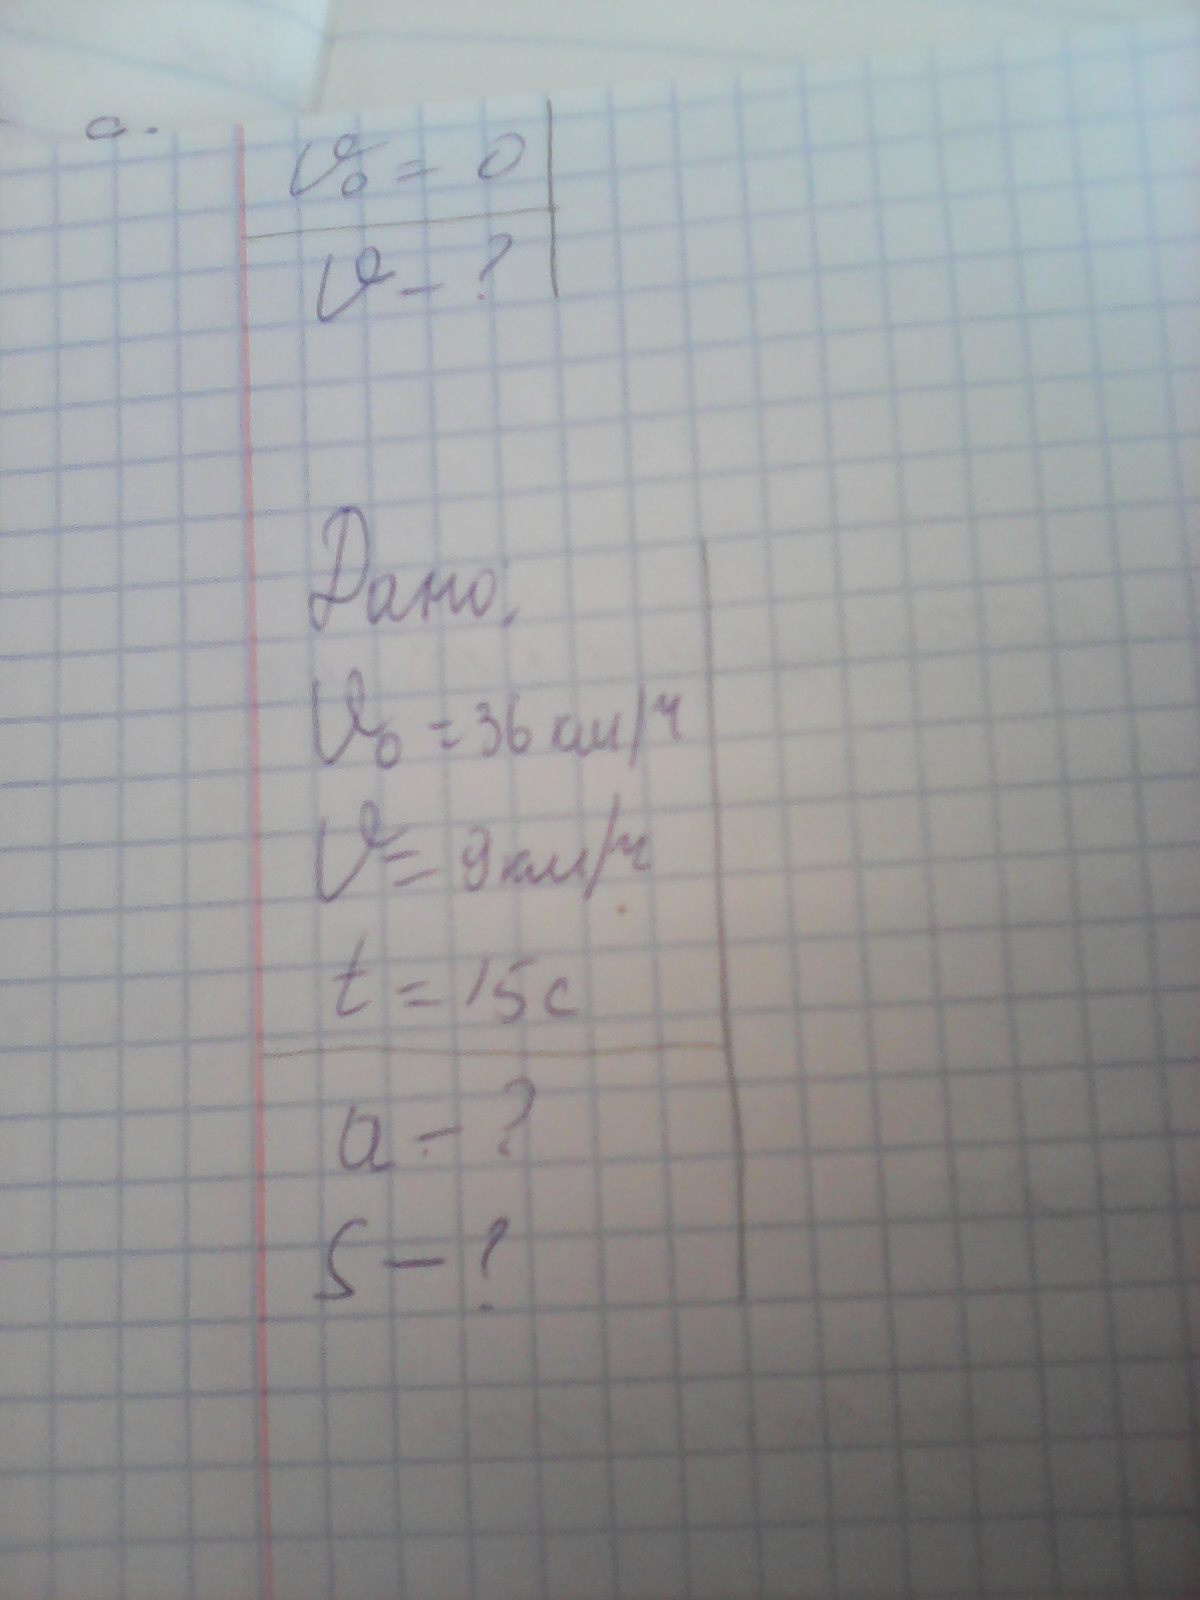 с.
V₀ = 0
V - ?
Дано:
V₀ = 36 км/ч
V = 9 км/ч
t = 15 с
a - ?
S - ?